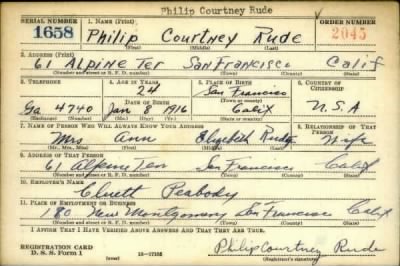 Philip Courtney Rude
SERIAL NUMBER 1. NAME (Print) ORDER NUMBER
1658 Philip Courtney Rude 2045
(First) (Middle) (Last)
2. ADDRESS (Print)
61 Alpine Ter San Francisco Calif
(Number and street or R. F. D. number) (Town) (County) (State)
3. TELEPHONE 4. AGE IN YEARS 5. PLACE OF BIRTH 6. COUNTRY OF CITIZENSHIP
24 San Francisco
(Town or county)
Ga 4740 Jan 8 1916 Calif U.S.A
(Mo.) (Day) (Yr.) (State or country)
7. NAME OF PERSON WHO WILL ALWAYS KNOW YOUR ADDRESS 8. RELATIONSHIP OF THAT PERSON
Mrs Ann Elizabeth Rude Wife
(Mr., Mrs., Miss) (First) (Middle) (Last)
9. ADDRESS OF THAT PERSON
61 Alpine Ter San Francisco Calif
(Number and street or R. F. D. number) (Town) (County) (State)
10. EMPLOYER'S NAME
Cluett Peabody
11. PLACE OF EMPLOYMENT OR BUSINESS
180 New Montgomery San Francisco Calif
(Number and street or R. F. D. number) (Town) (County) (State)
I AFFIRM THAT I HAVE VERIFIED ABOVE ANSWERS AND THAT THEY ARE TRUE.
REGISTRATION CARD
D. S. S. Form 1 Philip Courtney Rude
(Registrant's signature)